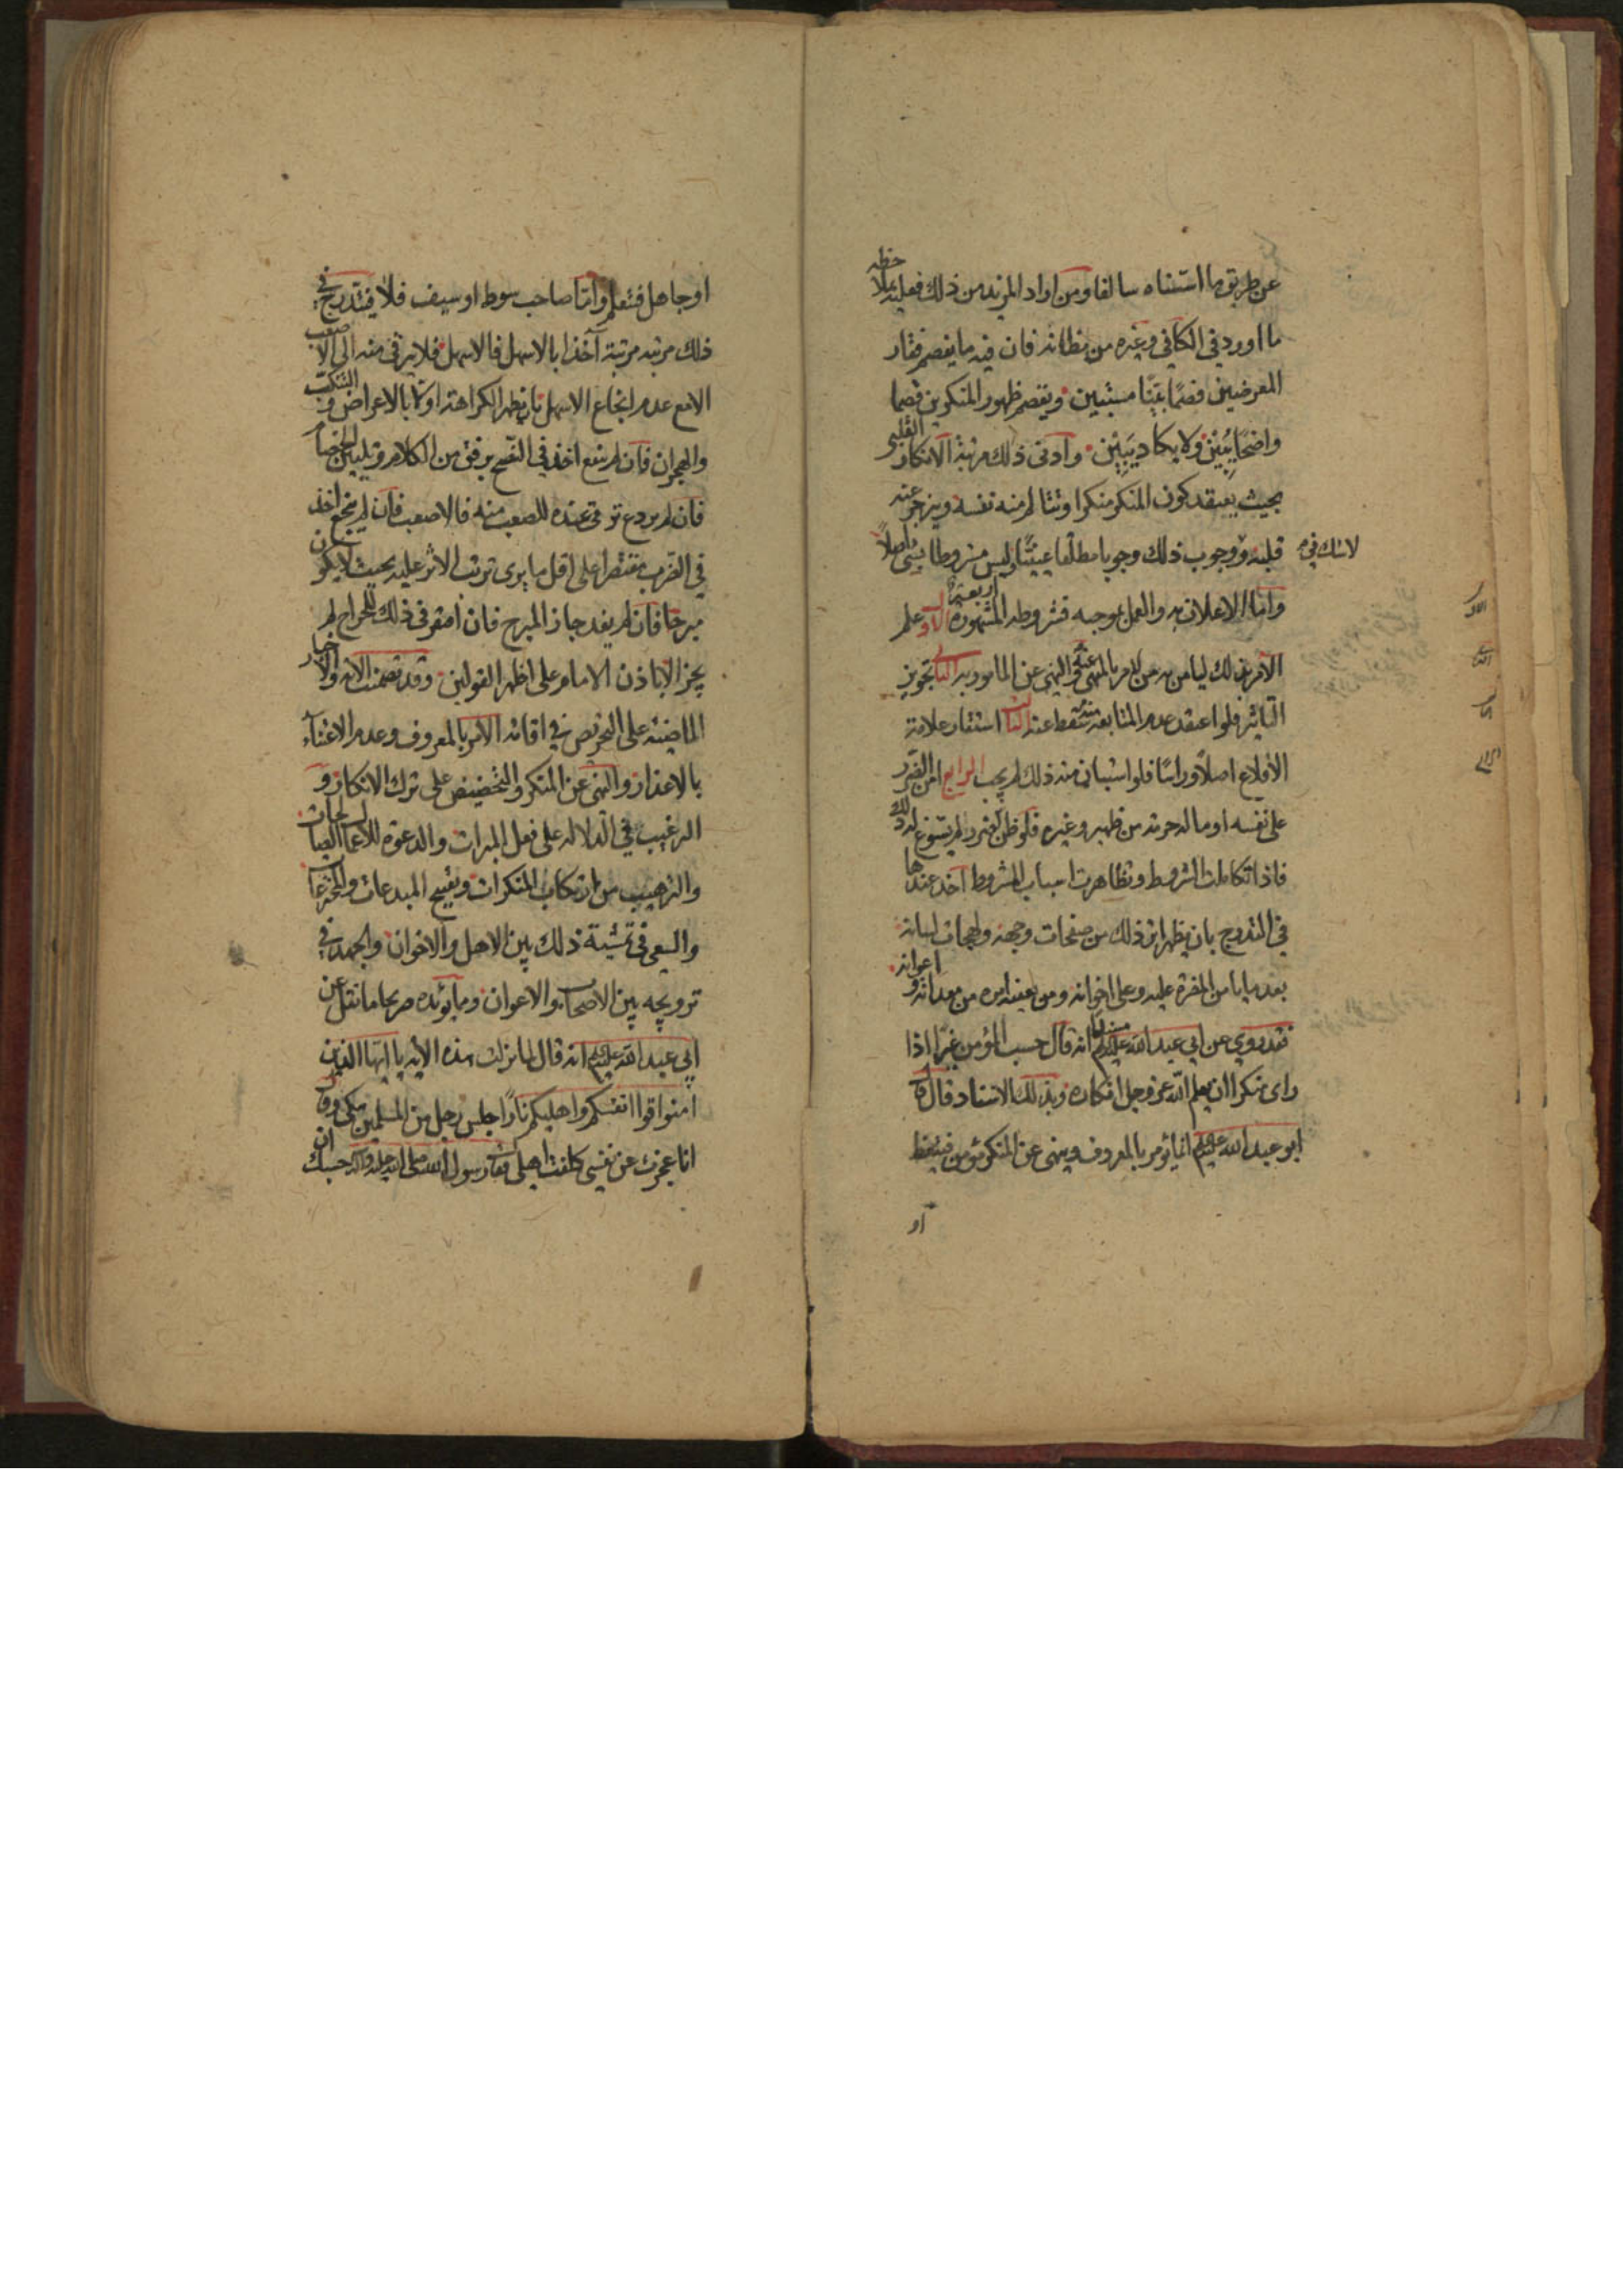 عن طريق ما استثناه سالفا ومن اراد المزيد من ذلك فعليه بملاحظة
ما اورد في الكافي وغيره من مظانه فان فيه ما يفصم فقار
المعرضين فصمًا بيّنًا مستبين ويقصم ظهور المنكرين قصما
واضحًا يُبين ولا يكاد يَبين وادنى ذلك مرتبة الانكار القلبي
بحيث يعتقد كون المنكر منكرا وتتالم منه نفسه وينزجر عنه
قلبه ووجوب ذلك وجوبا مطلقا عينيًّا وليس مشروطا بشئ اصلاً
لا شك فيه
واما الاعلان به والعمل بموجبه فشروطه المشهورة اربعة الاول علم
الامر بذلك ليامن من الامر بالمنهي عنه والنهي عن المامور به الثاني تجويز
التاثير فلو اعتقد عدم المتابعة منه سقط عنه الثالث استثار علامة
الاقلاع اصلاً وراسًا فلو استبان منه ذلك لم يجب الرابع امن الضرر
على نفسه او ماله حرمته من ظهير وغيره فلو ظن الضرر لم يسوغ له ذلك
فاذا تكاملت الشروط وتظاهرت اسباب المشروط اخذ عندها
في التدرج بان يظهر اثر ذلك من صفحات وجهه ولهجات لسانه
بعد ما يامن المضرة عليه وعلى اخوانه ومن يعينه امره من معدانه و اعوانه
فقد روي عن ابي عبد الله عليه السلم انه قال حسب المؤمن عزّا اذا
راى منكرا ان يعلم الله عز وجل انكاره وبذلك الاسناد قال قال
ابو عبد الله عليه السلم انما يؤمر بالمعروف وينهى عن المنكر مؤمن فيتعظ
او
الاول
الثاني
الثالث
الرابع
او جاهل فتعلم واما صاحب سوط او سيف فلا فيتدرج في
ذلك مرتبة مرتبة آخذا بالاسهل فالاسهل فلا يرقى منه الى الاصعب
الا مع عدم انجاع الاسهل بان يظهر الكراهة اولا بالاعراض و التنكب
والهجران فان لم ينجع اخذ في النصح برفق من الكلام وتليين الخصام
فان لم يردع ترقى عنده للصعب منه فالاصعب فان لم ينجع اخذ
في الضرب مقتصرا على اقل ما يرى ترتب الاثر عليه بحيث لا يكون
مبرحًا فان لم يفد جاز المبرح فان افتقر في ذلك للجراح لم
يجز الا باذن الامام على اظهر القولين وقد تضمنت الاية والاخبار
الماضية على التحريص في اقامة الامر بالمعروف وعدم الاعتناء
بالاعذار والنهي عن المنكر والتحضيض على ترك الانكار و
الترغيب في الدلالة على فعل المبرات والدعوة للاعمال الصالحات
والترهيب من ارتكاب المنكرات وتقبيح المبدعات والمخترعات
والسعي في تمشية ذلك بين الاهل والاخوان والجهد في
ترويجه بين الاصحاب والاعوان ومما يؤيده صريحا ما نقل عن
ابي عبد الله عليه السلم انه قال لما نزلت هذه الاية يا ايها الذين
امنوا قوا انفسكم واهليكم نارًا جلس رجل من المسلمين يبكي وقال
انا عجزت عن نفسي كلفت اهلي فقال رسول الله صلى الله عليه وآله حسبك ان